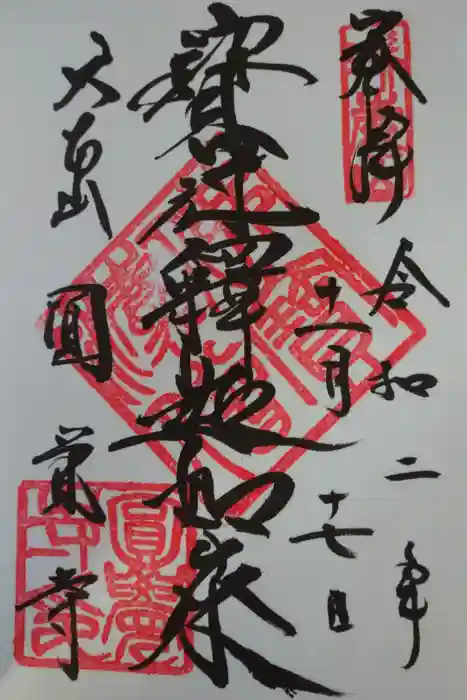 奉拝
令和二年
十一月
十七日
寶冠釋迦如来
大本山
圓覚寺